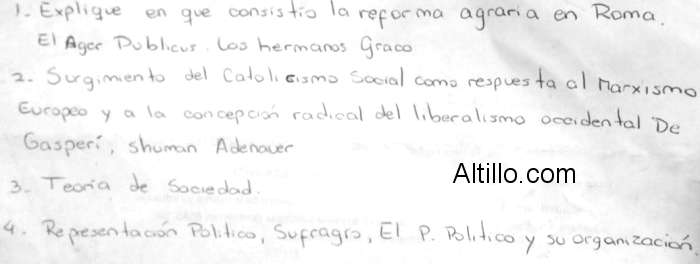 1. Explique en que consistio la reforma agraria en Roma.
El Ager Publicus. Los hermanos Graco
2. Surgimiento del Catolicismo Social como respuesta al Marxismo
Europeo y a la concepción radical del liberalismo occidental De
Gasperi, shuman Adenauer
3. Teoria de Sociedad.
Altillo.com
4. Representación Politico, Sufragio, El P. Politico y su organización.